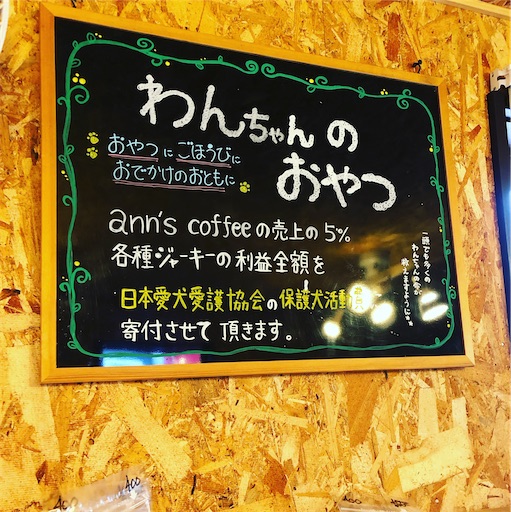 わんちゃんの
おやつ
おやつにごほうびに
おでかけのおともに
ann's coffeeの売上の5%
各種ジャーキーの利益全額を
日本愛犬愛護協会の保護犬活動費
寄付させて頂きます。
一頭でも多くの
わんちゃんの命が
救えますように
400
400